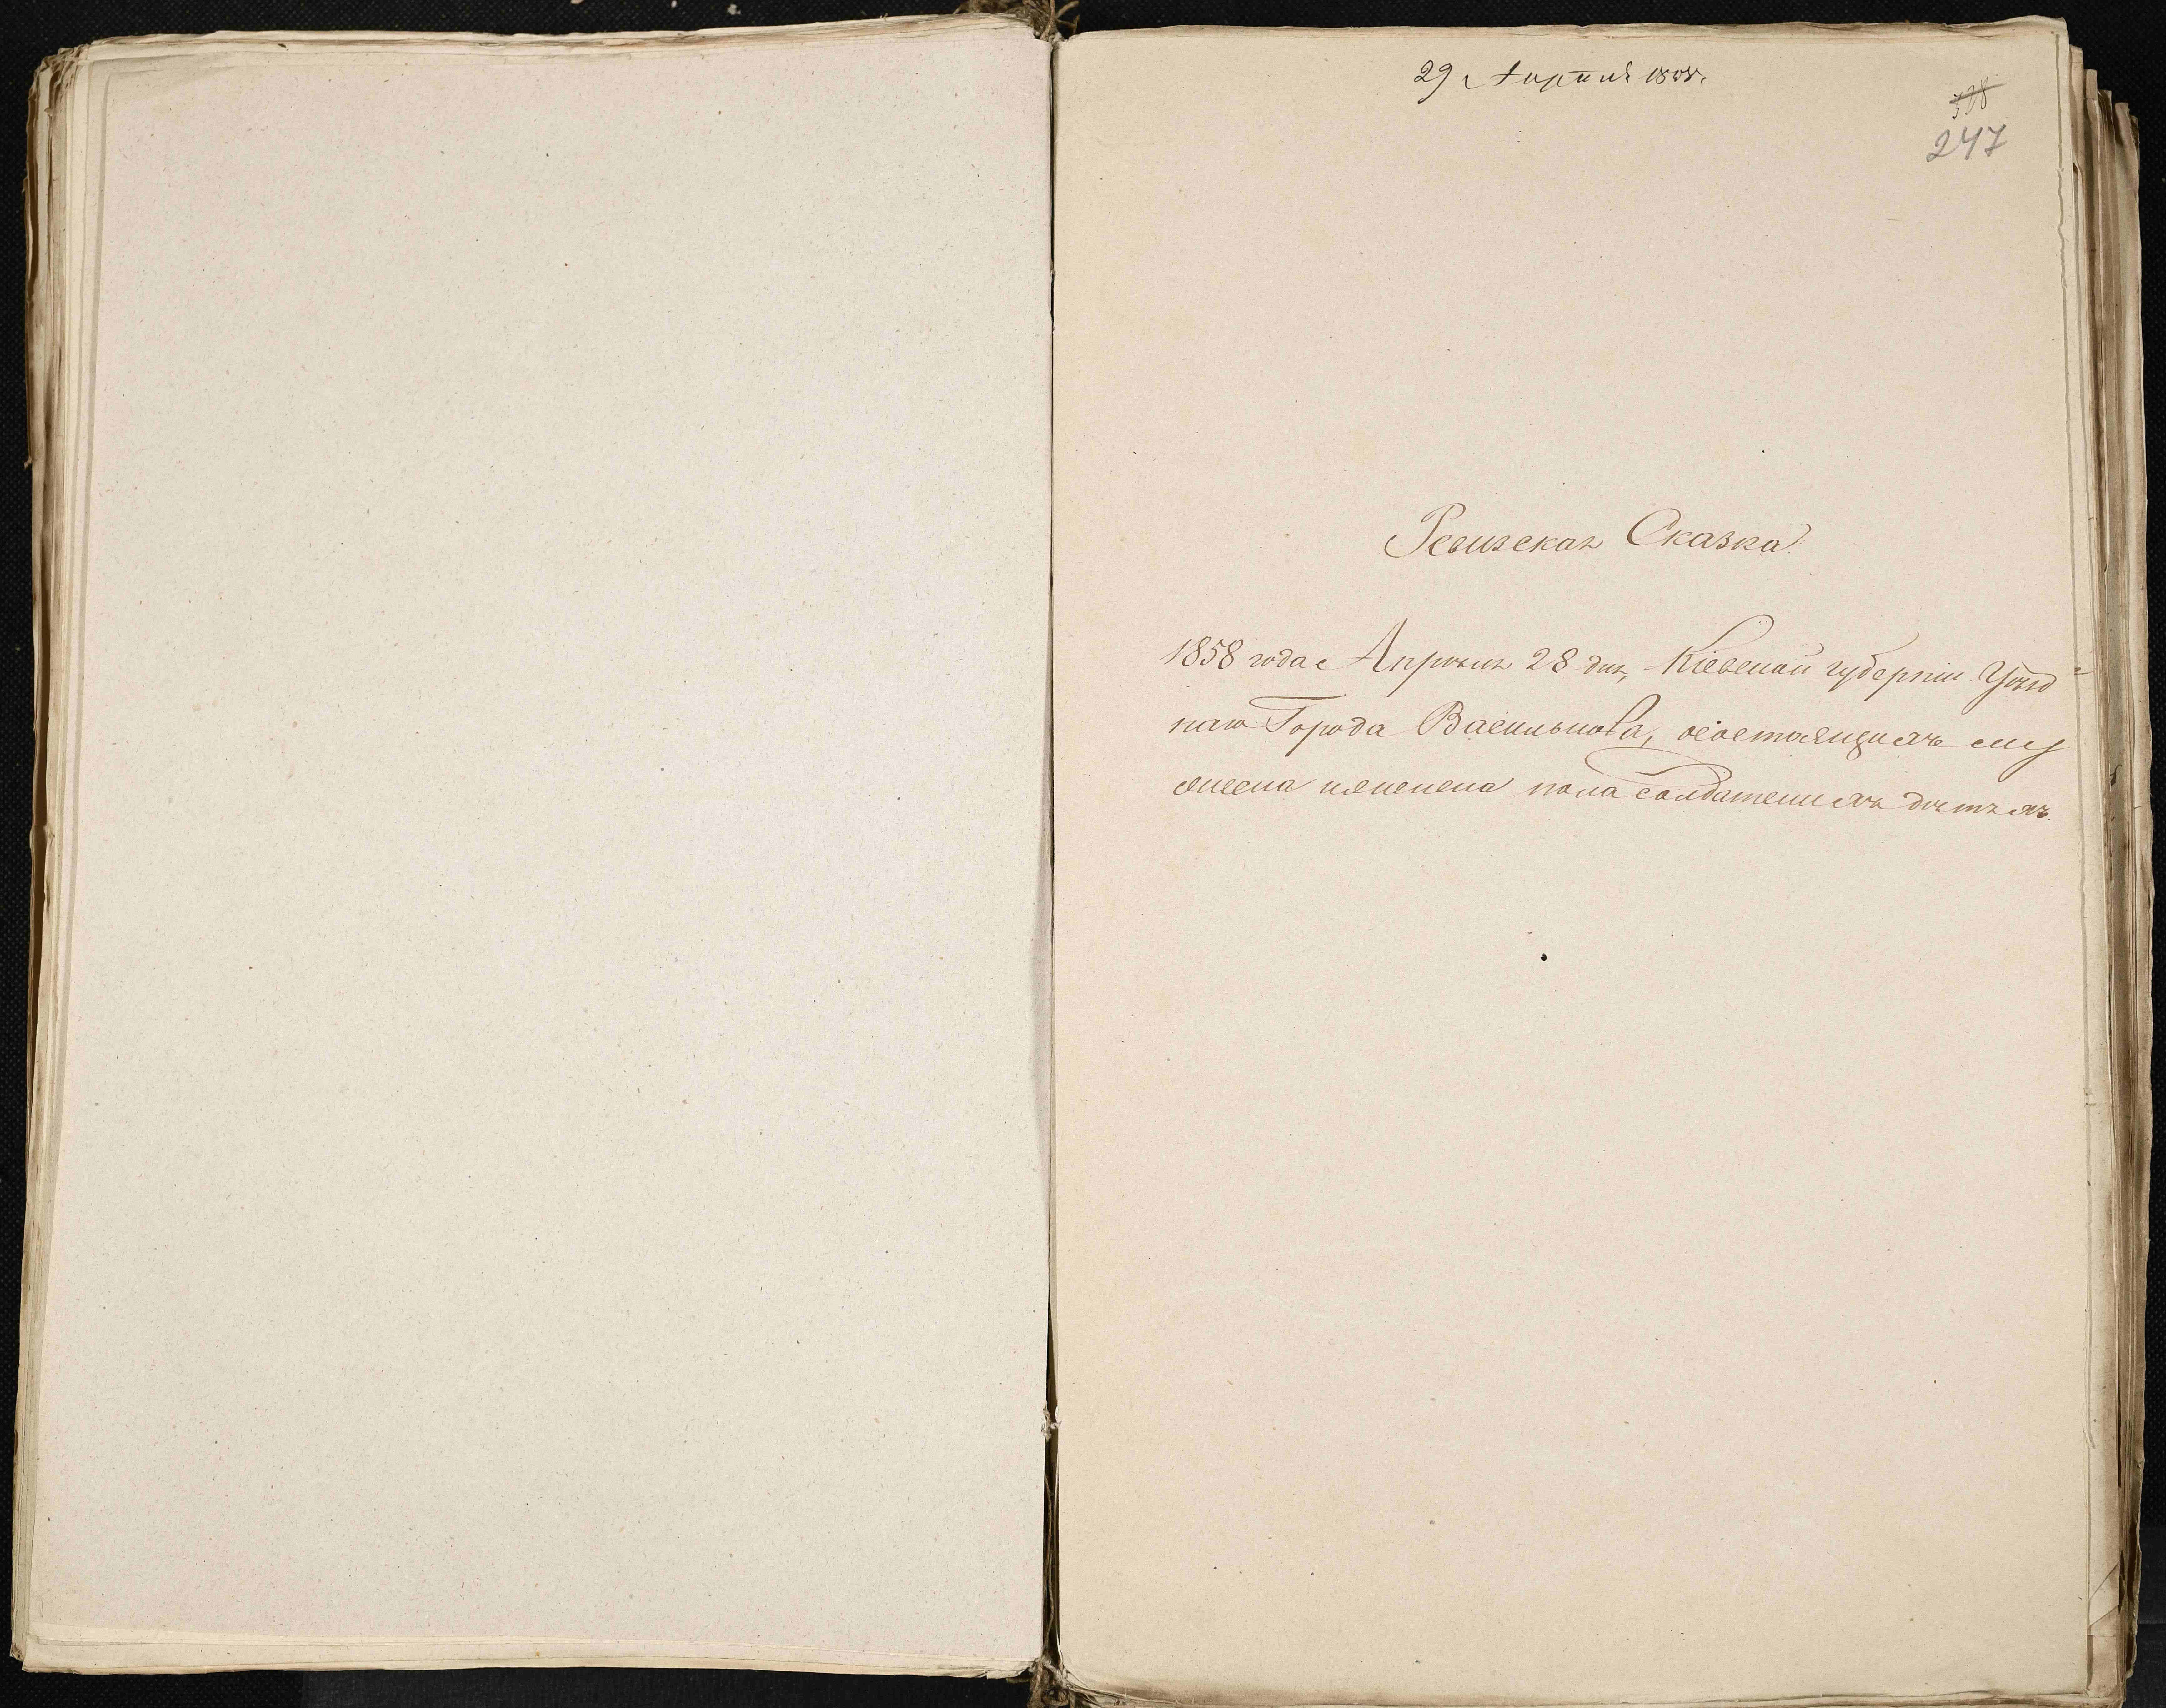 29 Апреля 1858.
328
247
Ревизская Сказка.
1858 года Апрѣля 28 дня, Кіевской губерніи Уѣзд=
наго Города Василькова, о состоящихъ му
жеска и женска пола солдатскихъ дѣтяхъ.